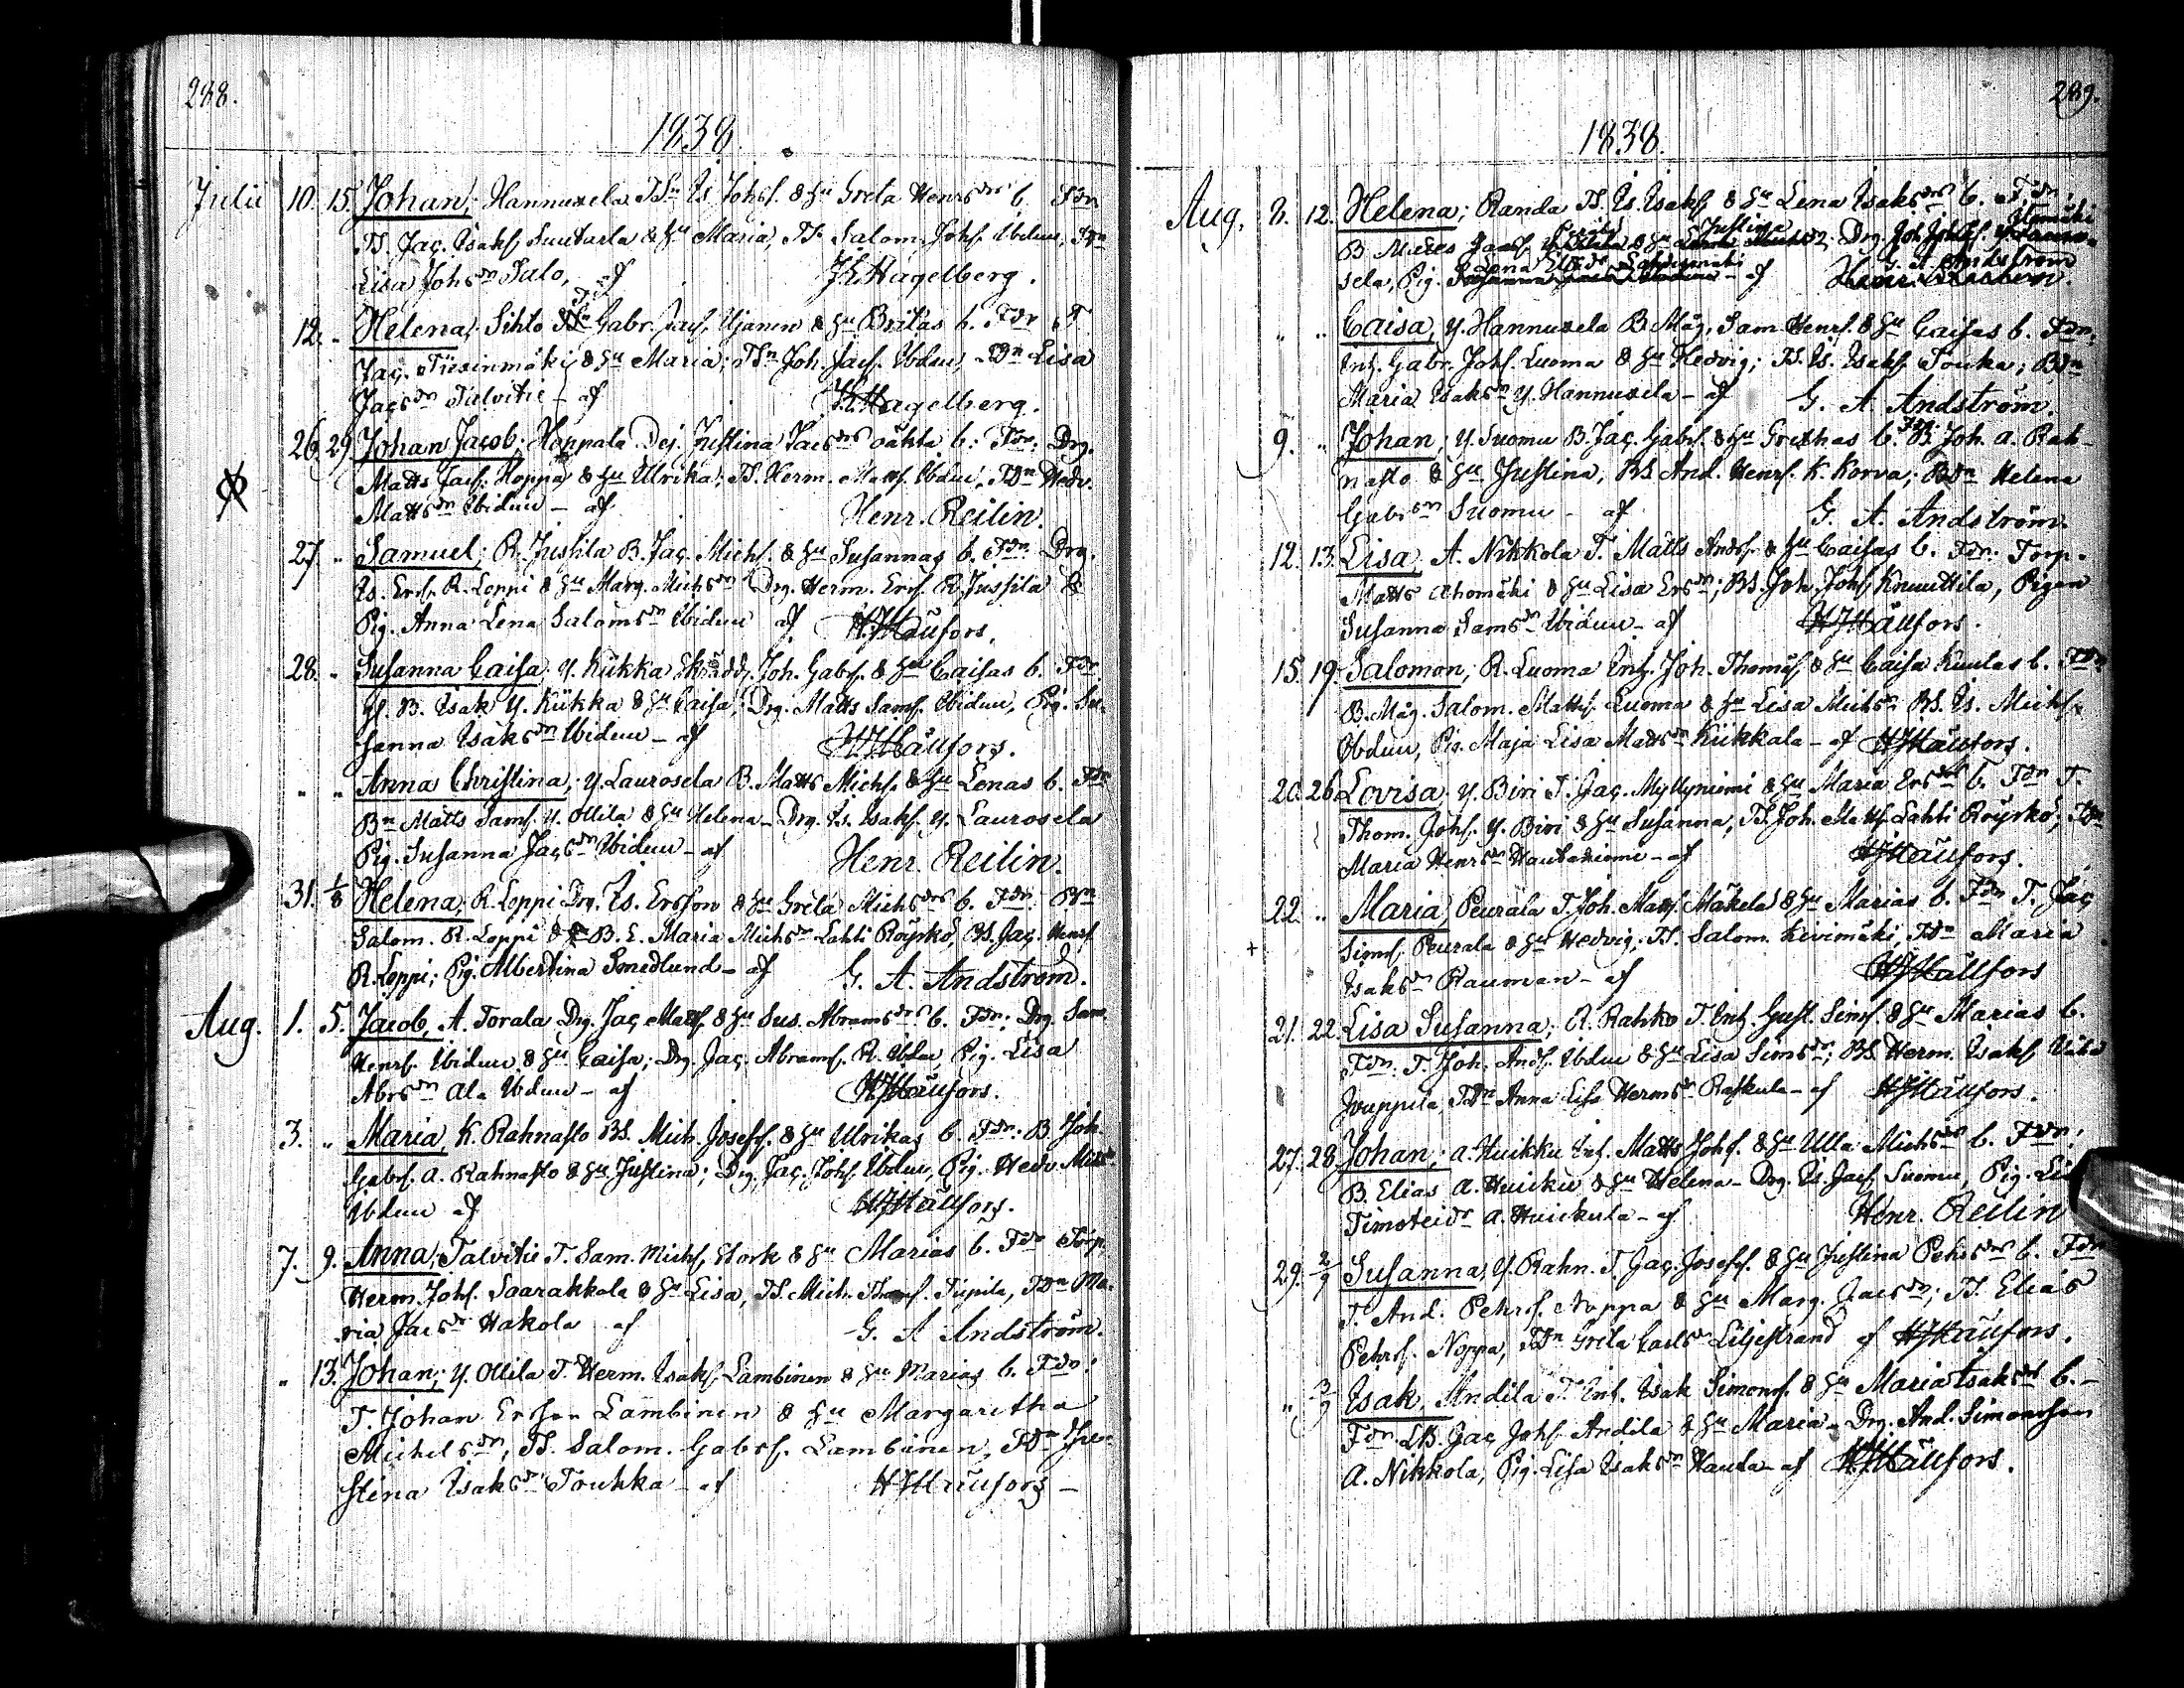 288.
1838.
Julii 10. 15. Johan; Hannuxela TSn Is. Johs. & Hu Greta Henrsdrs b. Fdr.
TS. Jac. Isaks. Suutarla & Hu Maria, TS. Salom. Johs. Ibdm, TDn
Lisa Johsdr Salo, af J. E. Hagelberg.
12. " Helena; Sihto Gabr. Jacs. Ujanen & Hu Britas b. Fdr T.
Jac. Tiesinmäki & Hu Maria; TSn Joh. Jacs. Ibdm, TDn Lisa
Jacsdr Talvitie – af J. E. Hagelberg.
26. 29. Johan Jacob; Hoppala Dej. Justina Jacsdrs oäkta b: Fdr: Drg.
Matts Jacs. Hoppa & Hu Ulrika; TS. Herm. Matts. Ibdm, TDn Hedv.
Mattsdr Ibidm – af Henr. Reilin.
27. " Samuel; R. Jussila B. Jac. Michs. & Hu Susannas b. Fdr: Drg.
Is. Ers. R. Loppi & Hu Marg. Michsdr Drg. Herm. Ers. R. Jussila &
Pig. Anna Lena Salomsdr Ibidm af H. J. Hällfors.
28. " Susanna Caisa, Y. Kukka Skrädd. Joh. Gabrs. & Hu Caisas b. Fdr
B. Isak Y. Kukka & Hu Caisa; Drg. Matts Sams. Ibidm, Pig. Su-
sanna Isaksdr Ibidm – af H. J. Hällfors.
" " Anna Christina; Y. Laurosela B. Matts Michs. & Hu Lenas b. Fdr
Bn Matts Sams. Y. Ollila & Hu Helena – Drg. Is. Isaks. Y. Laurosela
Pig. Susanna Jacsdr Ibidm – af Henr. Reilin.
31. 1/8 Helena; R. Loppi Drg. Is. Ersson & Hu Greta Michsdrs b. Fdr: Bn
Salom. R. Loppi & B. E. Maria Michsdr Lahti Röyskö, BS. Jac. Henrs.
R. Loppi; Pig. Albertina Smedlund – af G. A. Andström.
Aug. 1. 5. Jacob, A. Torala Drg. Jac. Matts. & Hu Sus. Abramsdrs b. Fdr; Drg. Sam.
Henrs. Ibidm & Hu Caisa; Drg. Jac. Abrams. R. Ibdm, Pig. Lisa
Abrsdr Ala Ibdm – af H. J. Hällfors.
3. " Maria, K. Rahnasto BS. Mich. Josefs. & Hu Ulrikas b. Fdr: B. Joh.
Gabrs. A. Rahnasto & Hu Justina; Drg. Jac. Johs. Ibdm, Pig. Hedv.
Ibdm af H. J. Hällfors.
7. 9. Anna, Talvitie T. Sam. Michs. Stork & Hu Marias b. Fdr Torp.
Herm. Johs. Saarakkala & Hu Lisa, TS. Mich. Thoms. Tiipila, TDn Ma-
ria Jacsdr Hakola af G. A. Andström.
" 13. Johan; Y. Ollila T. Herm. Isaks. Lambinen & Hu Marias b. Fdr:
T. Johan Ersson Lambinen & Hu Margaretha
Michelsdr; TS. Salom. Gabrs. Lambinen, TDn Ju-
stina Isaksdr Touhka – af H. J. Hällfors –
289.
1838.
Aug. 8. 12. Helena; Randa TS. Is. Isaks. & Hu Lena Isaksdrs b. Fdr.
B. & Hu Justina Drg. Joh. Johs.
sela, Pig. Lena – af G. A. Andström
" " Caisa, Y. Hannuxela B. Måg. Sam. Henrs. & Hu Caisas b. Fdr.
Inh. Gabr. Johs. Luoma & Hu Hedvig; TS. Is. Isaks. Touka; BDn
Maria Isaksdr Y. Hannuxela – af G. A. Andström.
9. " Johan; Y. Suomu B. Jac. Gabrs. & Hu Grethas b. Fdr. B. Joh. A. Rah-
nasto & Hu Justina; BS. And. Henrs. K. Korva; BDn Helena
Gabrsdr Suomu – af G. A. Andström.
12. 13. Lisa, A. Nikkola T. Matts Ands. & Hu Caisas b. Fdr: Torp.
Matts Ahomäki & Hu Lisa Ersdr; BS. Joh. Johs. Knuuttila, Pigan
Susanna Samsdr Ibidm – af H. J. Hällfors.
15. 19. Salomon, R. Luoma Inh. Joh. Thomæs. & Hu Caisa Kuulas b. Fdr
B. Måg. Salom. Matts. Luoma & Hu Lisa Michsdr; BS. Is. Michs.
Ibdm, Pig. Maja Lisa Mattsdr Kiikkala – af H. J. Hällfors.
20. 26. Lovisa, Y. Biri T. Jac. Myllyniemi & Hu Maria Ersdrs b. Fdr T.
Thom. Johs. Y. Biri & Hu Susanna, TS. Joh. Matts. Lahti Röyskö; TDn
Maria Henrsdr Hautaniemi – af H. J. Hällfors.
22. " Maria, Peurala T. Joh. Matts. Mäkelä & Hu Marias b. Fdr T. Jac.
+ Sims. Peurala & Hu Hedvig; TS. Salom. Kivimäki, TDn Maria
Isaksdr Rauman – af H. J. Hällfors
21. 22. Lisa Susanna; R. Rahko T. Inh. Gust. Sims. & Hu Marias b.
Fdr: T. Joh. Ands. Ibdm & Hu Lisa Simsdr; BS. Herm. Isaks. Vähä
Jouppila, TDn Anna Lisa Hermsdr Raskula – af H. J. Hällfors.
27. 28. Johan; A. Huikku Inh. Matts Johs. & Hu Ulla Michsdrs b. Fdr:
B. Elias A. Huicku & Hu Helena – Drg. Is. Jacs. Suomu, Pig.
Timoteidr A. Huickula – af Henr. Reilin
29. 2/9 Susanna, Y. Rahn. T. Jac. Josefs. & Hu Justina Pehrsdrs b. Fdr
T. And. Pehrs. Noppa & Hu Marg. Jacsdr; TS. Elias
Pehrs. Noppa, TDn Greta Carlsdr Liljestrand af H. J. Hällfors.
" 3/9 Isak, Andila T. Inh. Isak Simons. & Hu Maria Isaksdrs b. –
Fdr. LB. Jac. Johs. Andila & Hu Maria – Drg. And. Simonsson
A. Nikkola, Pig. Lisa Isaksdr Hauta – af H. J. Hällfors.